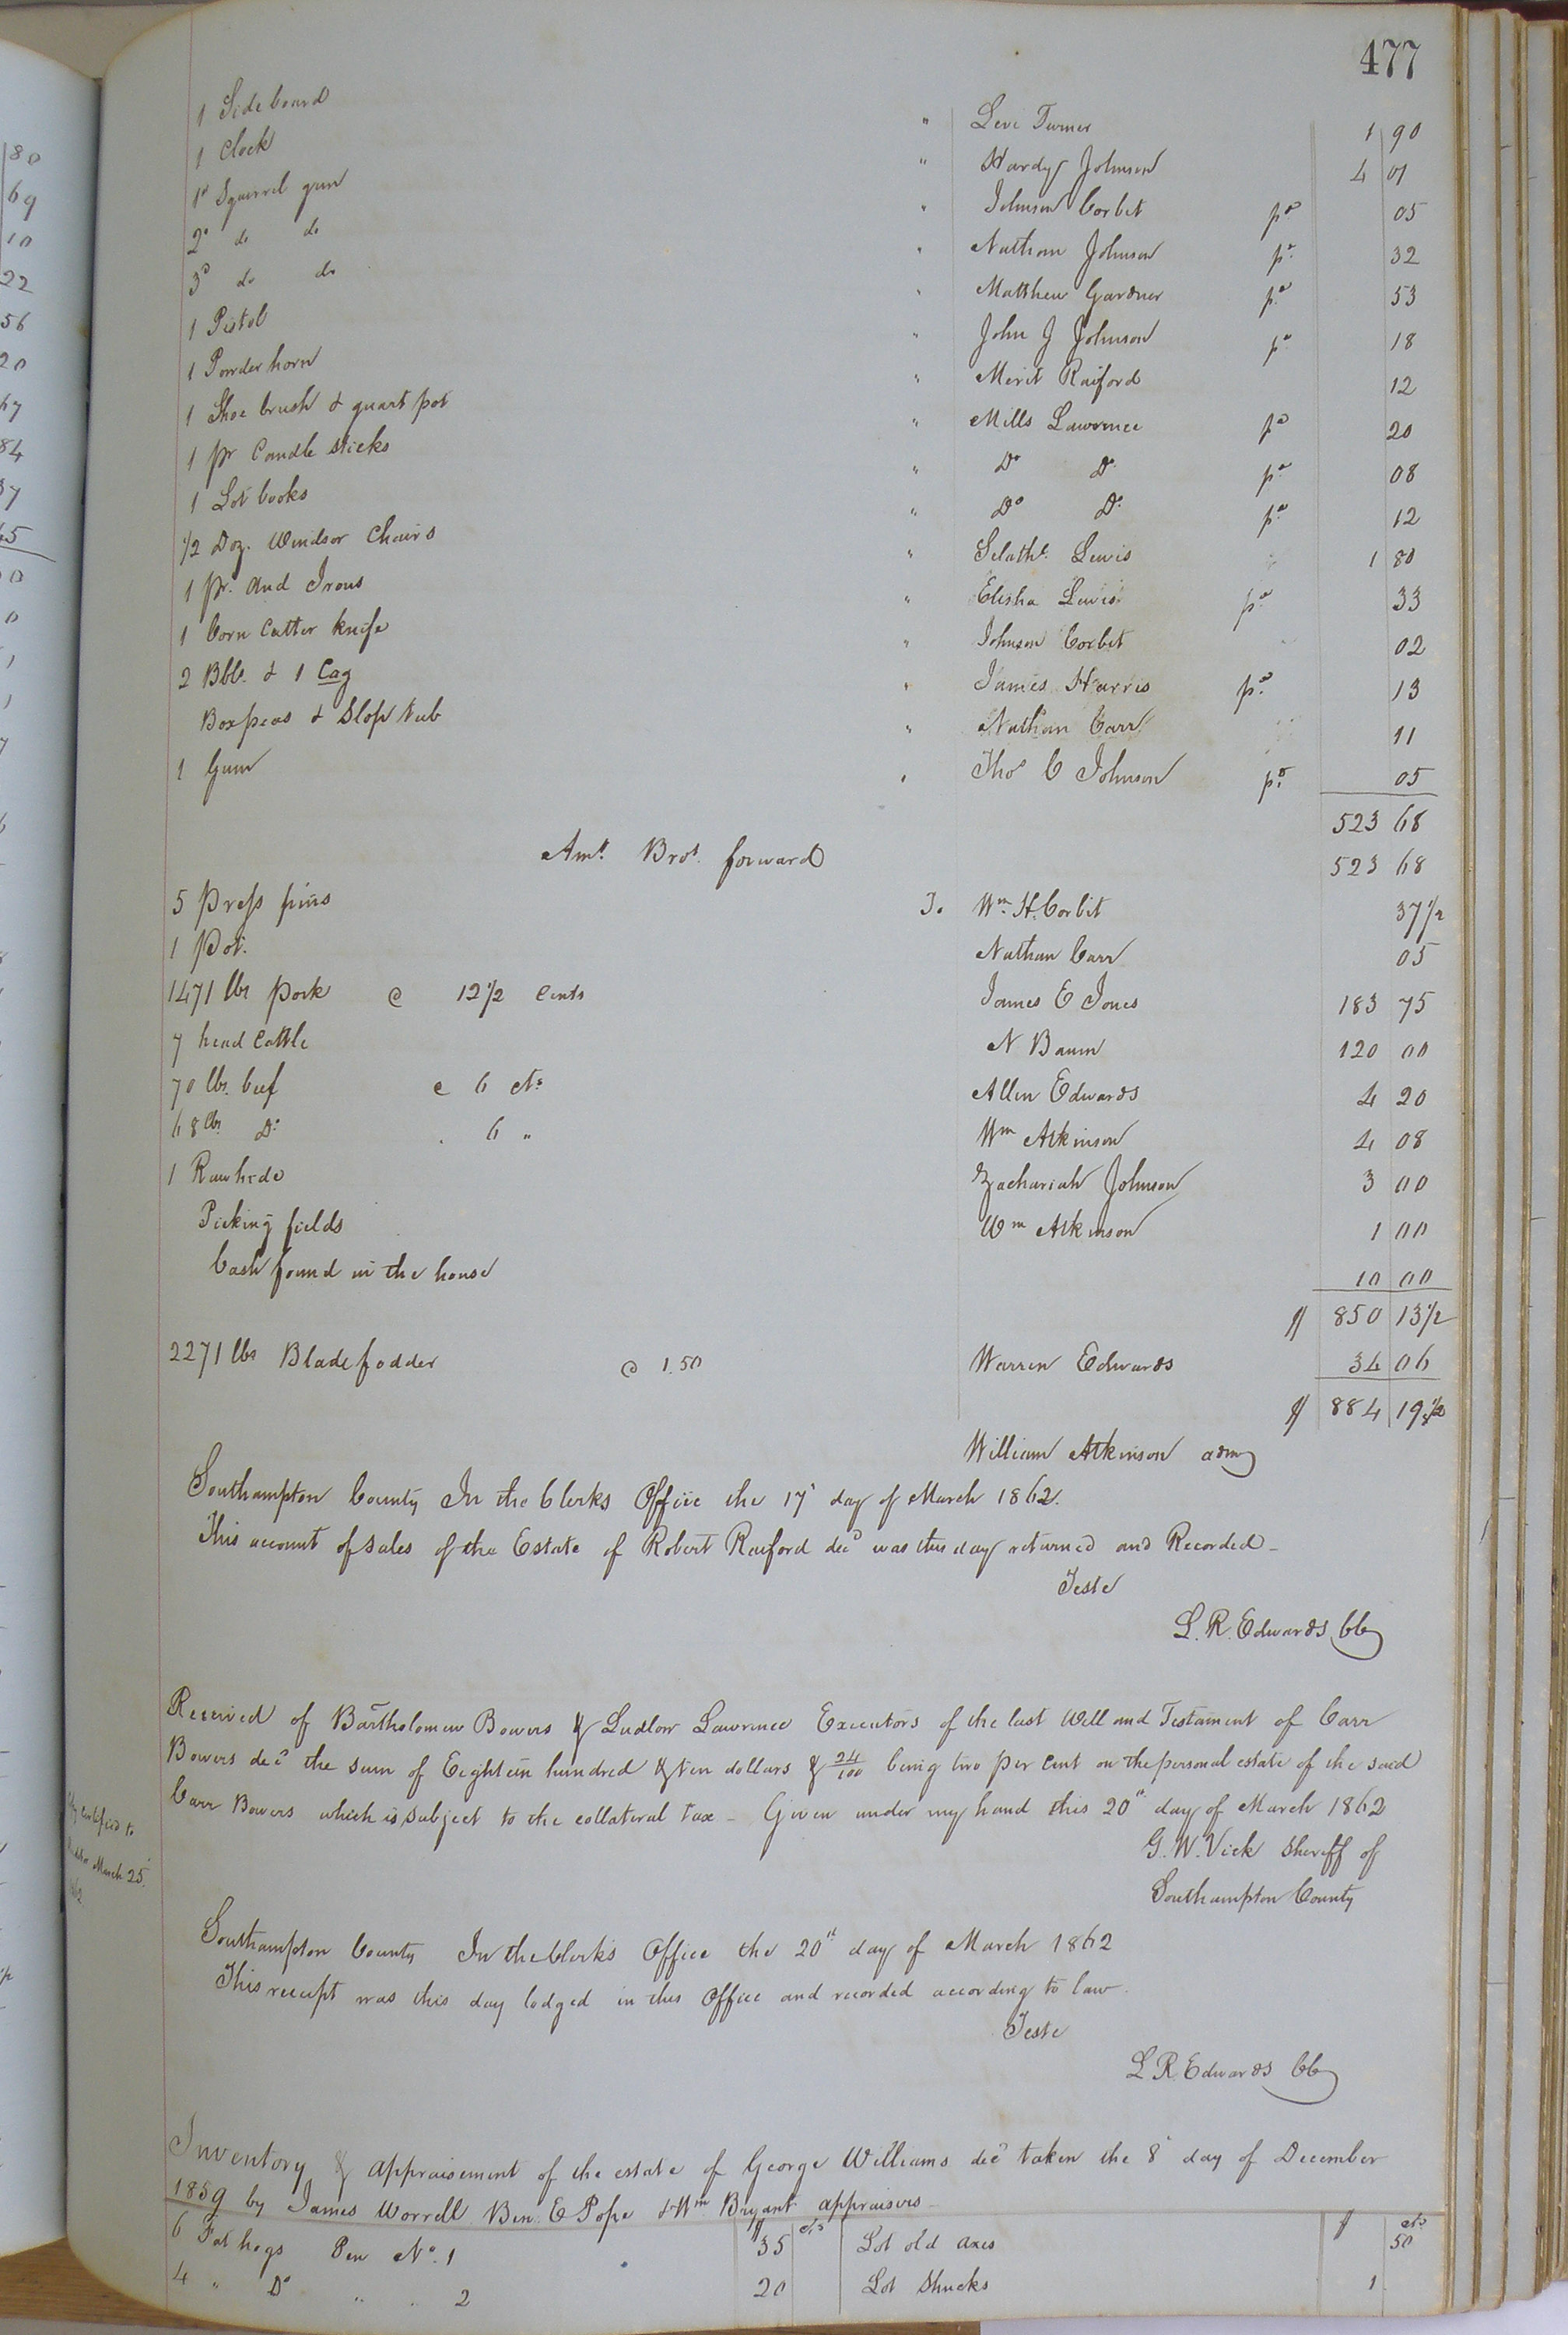 477
1 Sideboard " Levi Turner 1 90
1 Clock " Hardy Johnson 4 01
1st Squirrel gun " Johnson Corbit pd 05
2d do do " Nathan Johnson pd 32
3d do do " Matthew Gardner pd 53
1 Pistol " John J Johnson pd 18
1 Powder horn " Merit Raiford 12
1 Shoe brush & quart pot " Mills Lawrence pd 20
1 pr Candle sticks " Do Do pd 08
1 Lot books " Do Do pd 12
1/2 Doz. Windsor Chairs " Selathl. Lewis 1 80
1 pr. And Irons " Elisha Lewis pd 33
1 Corn Cutter knife " Johnson Corbit 02
2 Bbls. & 1 Cag " James Harris pd 13
Box peas & Slop tub " Nathan Carr 11
1 Gum " Thos C Johnson pd 05
523 68
Amt. Brot. forward 523 68
5 Press pins To Wm. H. Corbit 37 1/2
1 Pot. Nathan Carr 05
1471 lbs Pork @ 12 1/2 Cents James E Jones 183 75
7 head Cattle N Baum 120 00
70 lbs. beef @ 6 cts Allen Edwards 4 20
68 lbs Do. " 6 " Wm Atkinson 4 08
1 Raw hide Zachariah Johnson 3 00
Picking fields Wm Atkinson 1 00
Cash found in the house 10 00
$ 850 13 1/2
2271 lbs Blade fodder @ 1.50 Warren Edwards 34 06
$ 884 19 1/2
William Atkinson admr
Southampton County In the Clerks Office the 17th day of March 1862.
This account of sales of the Estate of Robert Raiford decd was this day returned and Recorded –
Teste
L. R. Edwards CC
Received of Bartholomew Bowers & Ludlow Lawrence Executors of the last Will and Testament of Carr
Bowers decd the sum of Eighteen hundred & ten dollars & 24/100 being two per cent on the personal estate of the said
Carr Bowers which is subject to the collateral tax – Given under my hand this 20th day of March 1862
G. W. Vick Sheriff of
Southampton County
certified to
March 25
Southampton County In the Clerks Office the 20th day of March 1862
This receipt was this day lodged in this Office and recorded according to law.
Teste
L R Edwards CC
Inventory & appraisement of the estate of George Williams decd taken the 8th day of December
1859 by James Worrell Ben. E Pope & Wm Bryant appraisers –
$ cts $ cts
6 Fat hogs Pen No. 1 35 Lot old axes 50
4 " Do " " 2 20 Lot Shucks 1